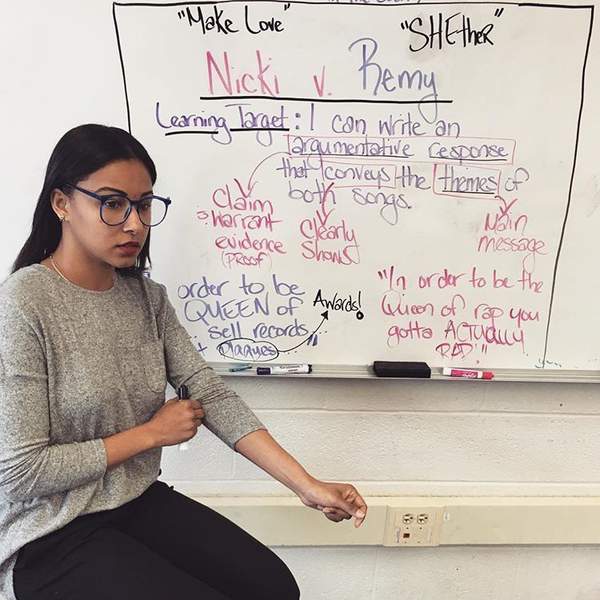 "Make Love"
"SHEther"
Nicki v. Remy
Learning Target: I can write an
argumentative response
that conveys the themes of
both songs.
Claim
warrant
evidence
(PROOF)
Clearly
Shows
Main
message
order to be
QUEEN of
sell records
+ plaques
Awards!
"In order to be the
Queen of rap you
gotta ACTUALLY
RAP"